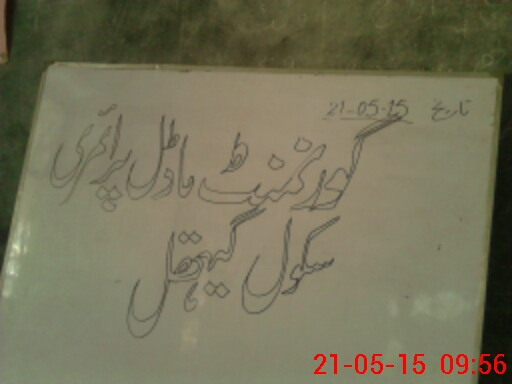 تاریخ 21-05-15
گورنمنٹ ماڈل پرائمری
سکول
21-05-15 09:56